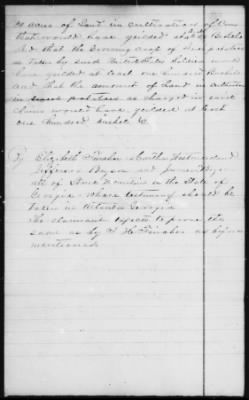 acres of Land in cultivation of Corn
that would have yielded Bushels
And that the growing crop of
so taken by said United States Soldiers would
have yielded at least one hundred Bushels
and that the amount of Land in cultivation
in potatoes as charged in said
claim would have yielded at least
one hundred bushels &c
By Elizabeth
Jefferson Bryson and James
all of Stone Mountain in the State of
Georgia whose testimony should be
taken in Atlanta Georgia
The claimant expects to prove the
same as by as before
mentioned